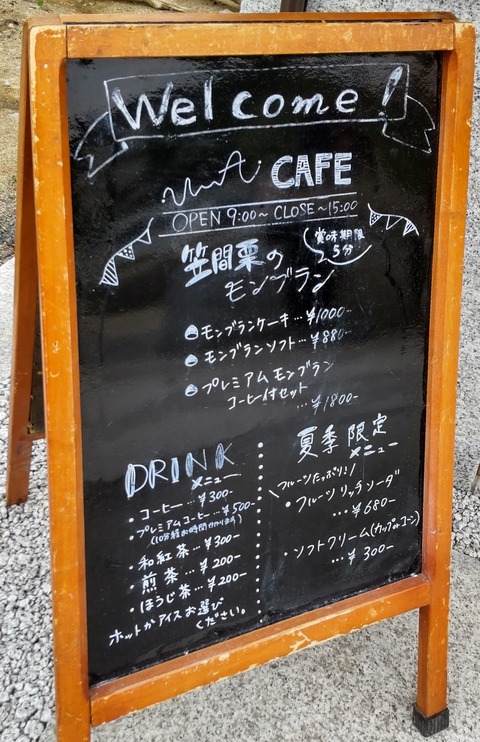 Welcome!
CAFE
OPEN 9:00〜 CLOSE〜15:00
賞味期限
5分
笠間栗の
モンブラン
モンブランケーキ…¥1000-
モンブランソフト…¥880-
プレミアムモンブラン
コーヒー付セット
…¥1800-
DRINK
メニュー
・コーヒー…¥300-
・プレミアムコーヒー…¥500-
(10分程お時間かかります)
・和紅茶…¥300-
・煎茶…¥200-
・ほうじ茶…¥200-
ホットかアイスお選び
ください。
夏季限定
メニュー
\フルーツたっぷり!/
・フルーツリッチソーダ
…¥680-
・ソフトクリーム(カップorコーン)
…¥300-